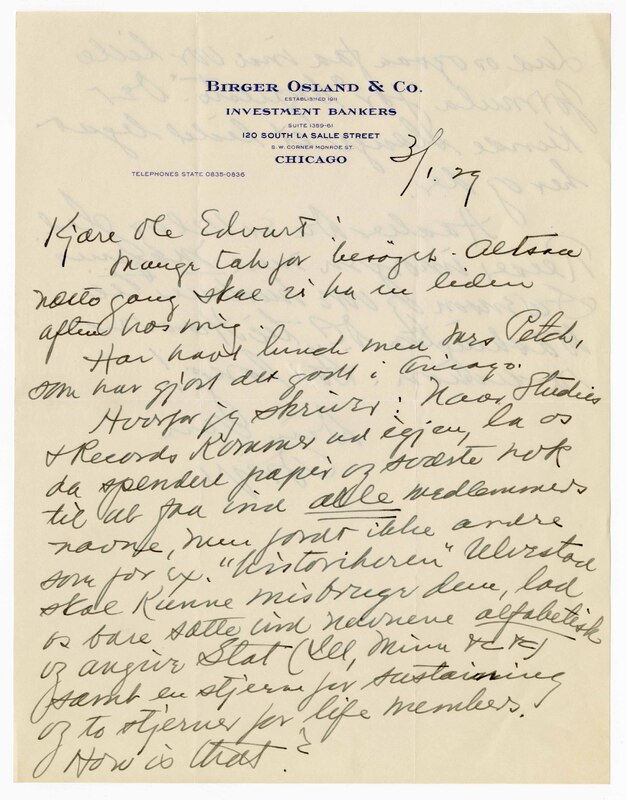 BIRGER OSLAND & CO.
ESTABLISHED 1911
INVESTMENT BANKERS
SUITE 1359-61
120 SOUTH LA SALLE STREET
S. W. CORNER MONROE ST.
CHICAGO
TELEPHONES STATE 0835-0836
3/1.29
Kjære Ole Edvart!
Mange tak for besöget. Altsaa
næste gang skal vi ha en liden
aften hos mig.
Har havt lunch med Mrs Petch,
som har gjort det godt i Chicago.
Hvorfor jeg skriver: Naar Studies
& Records kommer ud igjen, la os
da spendere papir og sværte nok
til at faa ind alle medlemmers
navne, men fordt ikke andre
som for ex. "historikeren" Ulvestad
skal kunne misbruge dem, lad
os bare sætte ind navnene alfabetisk
og angive Stat (Ill, Minn &c &c)
samt en stjerne for sustaining
og to stjerner for life members.
How is that?